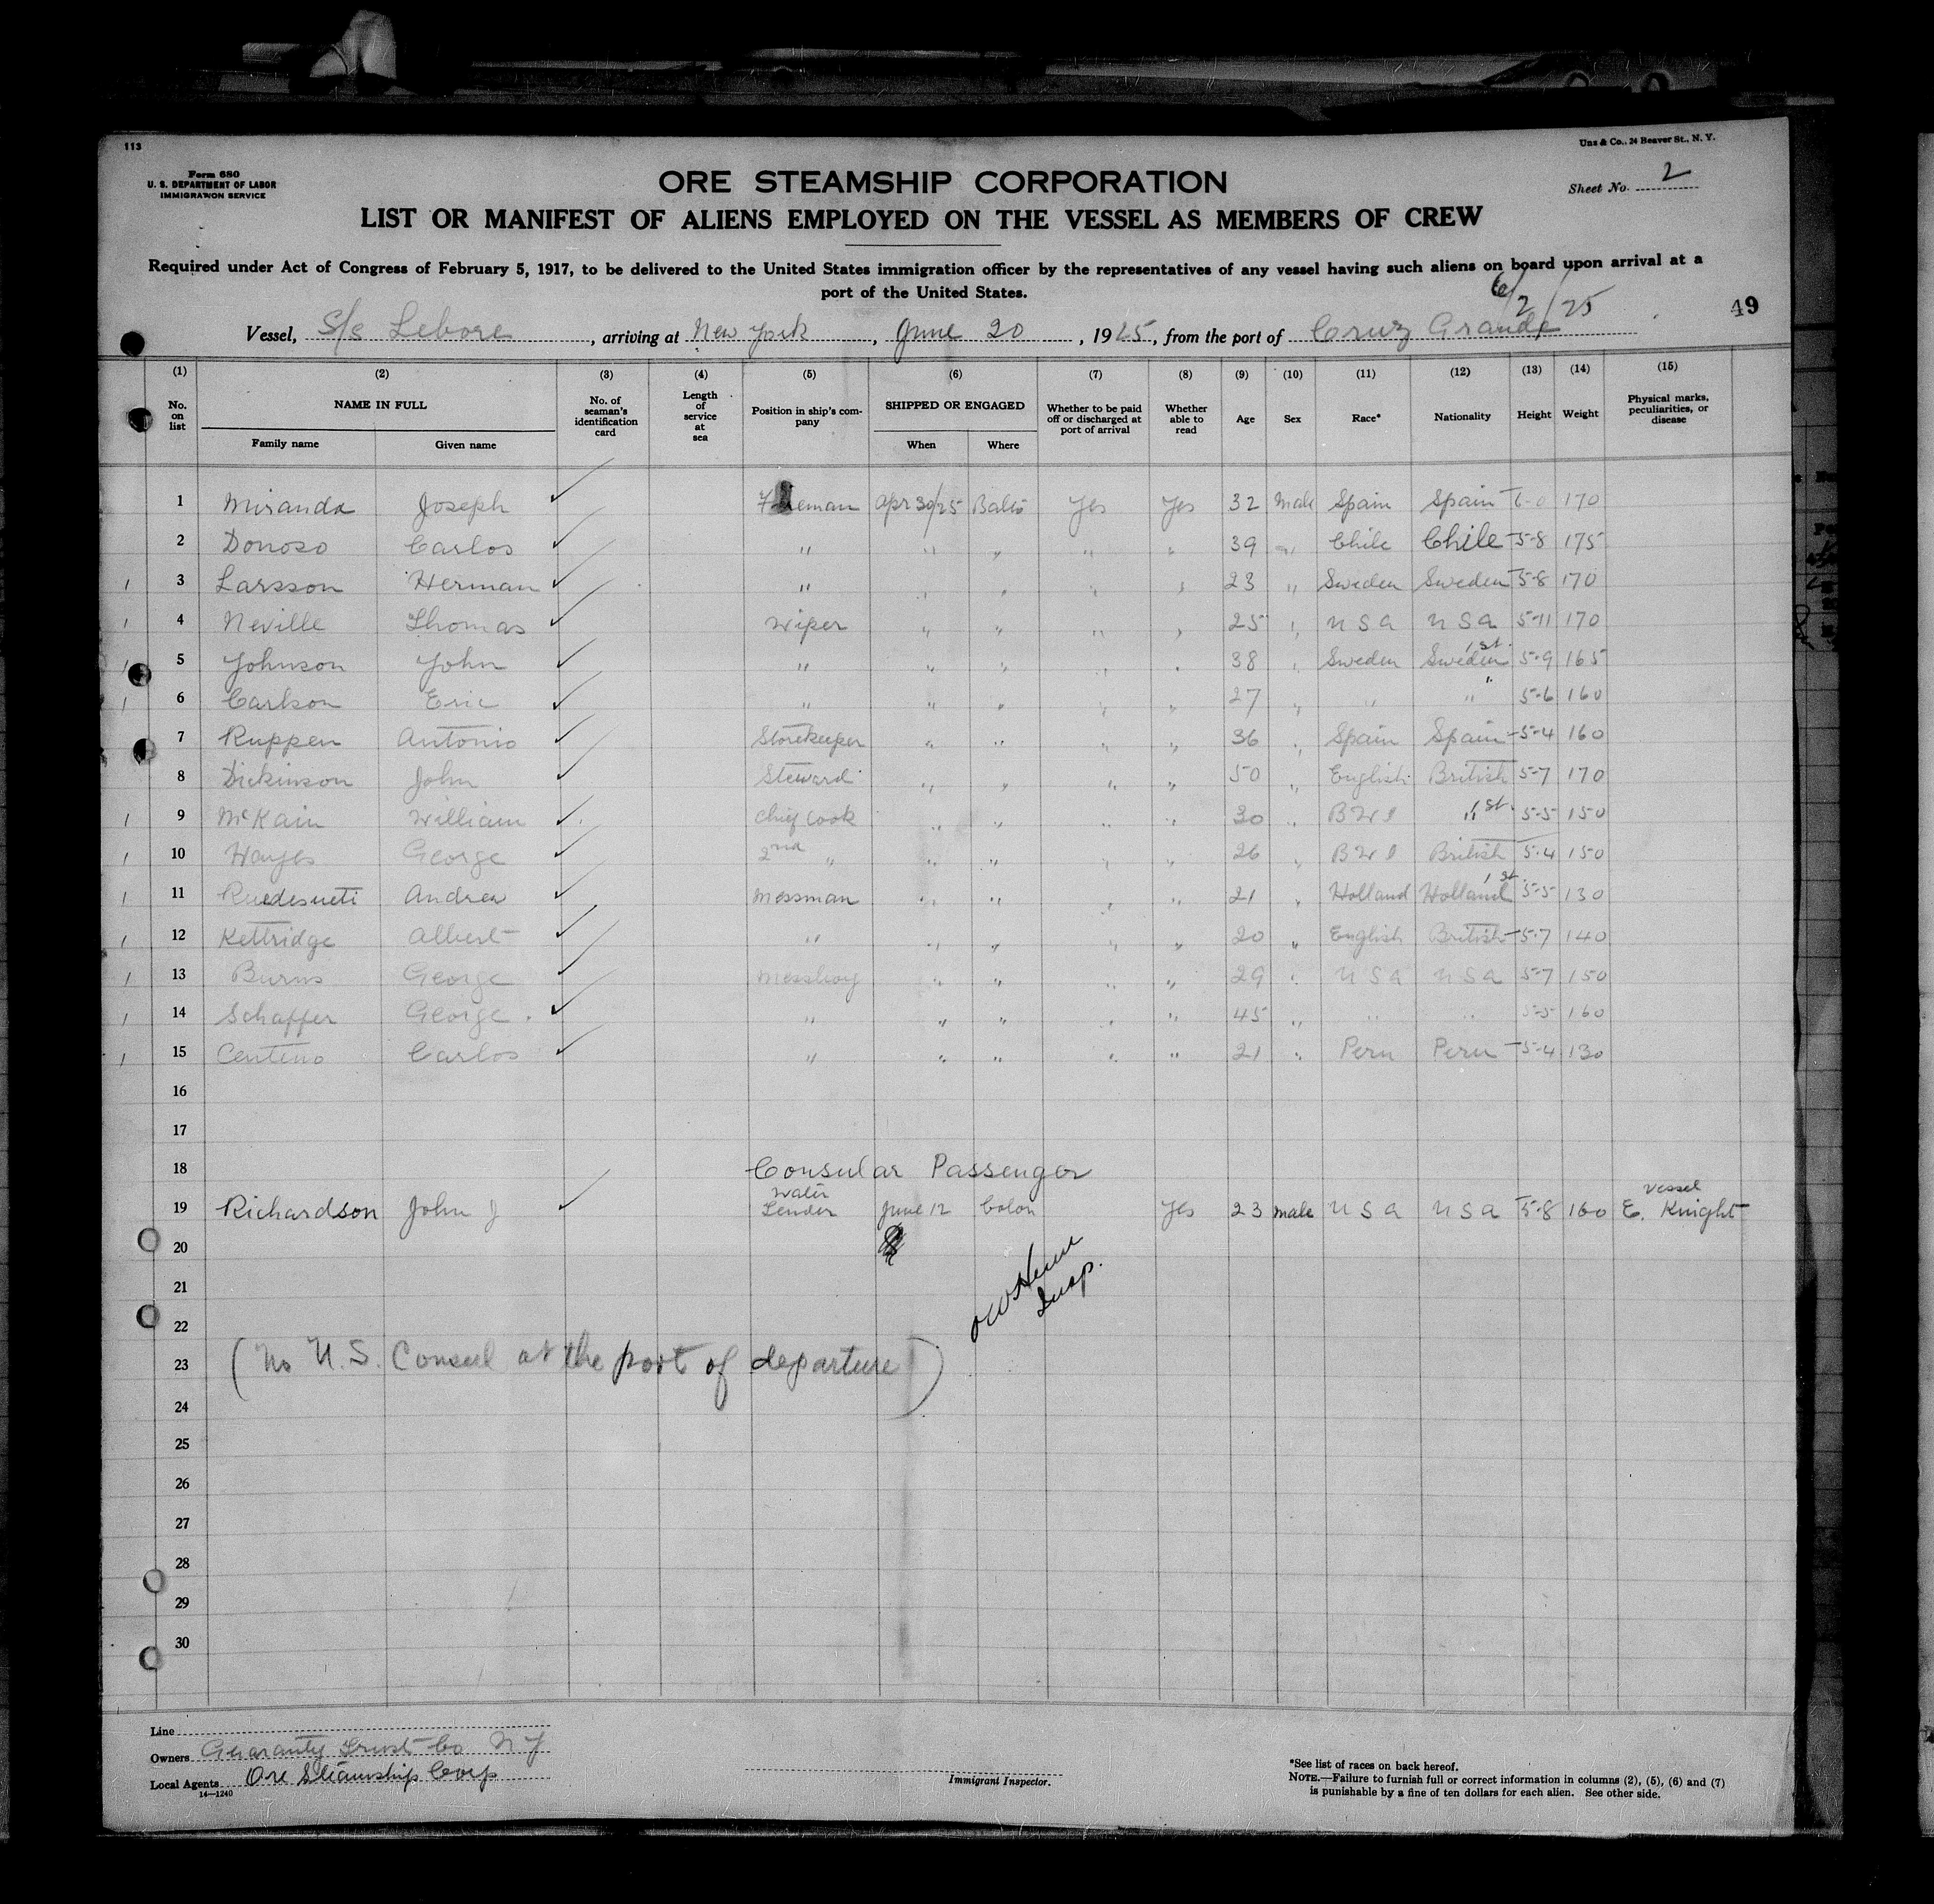 113
Unz & Co., 24 Beaver St., N. Y.
Form 680
U. S. DEPARTMENT OF LABOR
IMMIGRATION SERVICE
ORE STEAMSHIP CORPORATION
Sheet No. 2
LIST OR MANIFEST OF ALIENS EMPLOYED ON THE VESSEL AS MEMBERS OF CREW
Required under Act of Congress of February 5, 1917, to be delivered to the United States immigration officer by the representatives of any vessel having such aliens on board upon arrival at a
port of the United States.
6/2/25
49
Vessel, S/S Lebore, arriving at New York, June 20, 1925, from the port of Cruz Grande
(1) (2) (3) (4) (5) (6) (7) (8) (9) (10) (11) (12) (13) (14) (15)
No. on list NAME IN FULL Family name Given name No. of seaman's identification card Length of service at sea Position in ship's company SHIPPED OR ENGAGED When Where Whether to be paid off or discharged at port of arrival Whether able to read Age Sex Race* Nationality Height Weight Physical marks, peculiarities, or disease
1 Miranda Joseph Fireman Apr 30/25 Balto Yes Yes 32 Male Spain Spain 6-0 170
2 Donoso Carlos " " " " " 39 " Chile Chile 5-8 175
3 Larsson Herman " " " " " 23 " Sweden Sweden 5-8 170
4 Neville Thomas Wiper " " " " 25 " U S A U S A 5-11 170
5 Johnson John " " " " " 38 " Sweden Sweden 1st 5-9 165
6 Carlson Eric " " " " " 27 " " " " 5-6 160
7 Ruppen Antonio Storekeeper " " " " 36 " Spain Spain 5-4 160
8 Dickinson John Steward " " " " 50 " English British 5-7 170
9 McKain William Chief Cook " " " " 30 " B W I " 1st 5-5 150
10 Hayes George 2nd " " " " " 26 " B W I British 5-4 150
11 Andrea Messman " " " " 21 " Holland Holland 1st 5-5 130
12 Kettridge Albert " " " " " 20 " English British 5-7 140
13 Burns George Messboy " " " " 29 " U S A U S A 5-7 150
14 Schaffer George " " " " " 45 " " " 5-5 160
15 Centeno Carlos " " " " " 21 " Peru Peru 5-4 130
16
17
18 Consular Passenger
19 Richardson John J Water Tender June 12 Colon Yes 23 male U S A U S A 5-8 160 Vessel E. Knight
20
21
Insp.
22
23 (No U.S. Consul at the port of departure)
24
25
26
27
28
29
30
Line
Owners Guaranty Trust Co N Y
Local Agents Ore Steamship Corp
14—1240
Immigrant Inspector.
*See list of races on back hereof.
NOTE.—Failure to furnish full or correct information in columns (2), (5), (6) and (7)
is punishable by a fine of ten dollars for each alien. See other side.